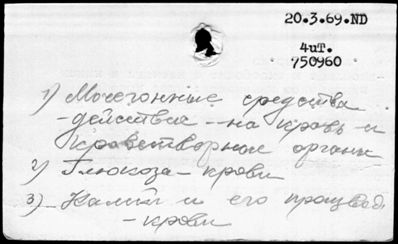 20.3.69.ND
4иT.
750960
1) Мочегонные средства
- действие - на кровь и
кроветворные органы
2) Глюкоза - крови
3) Калий и его производ.
- крови